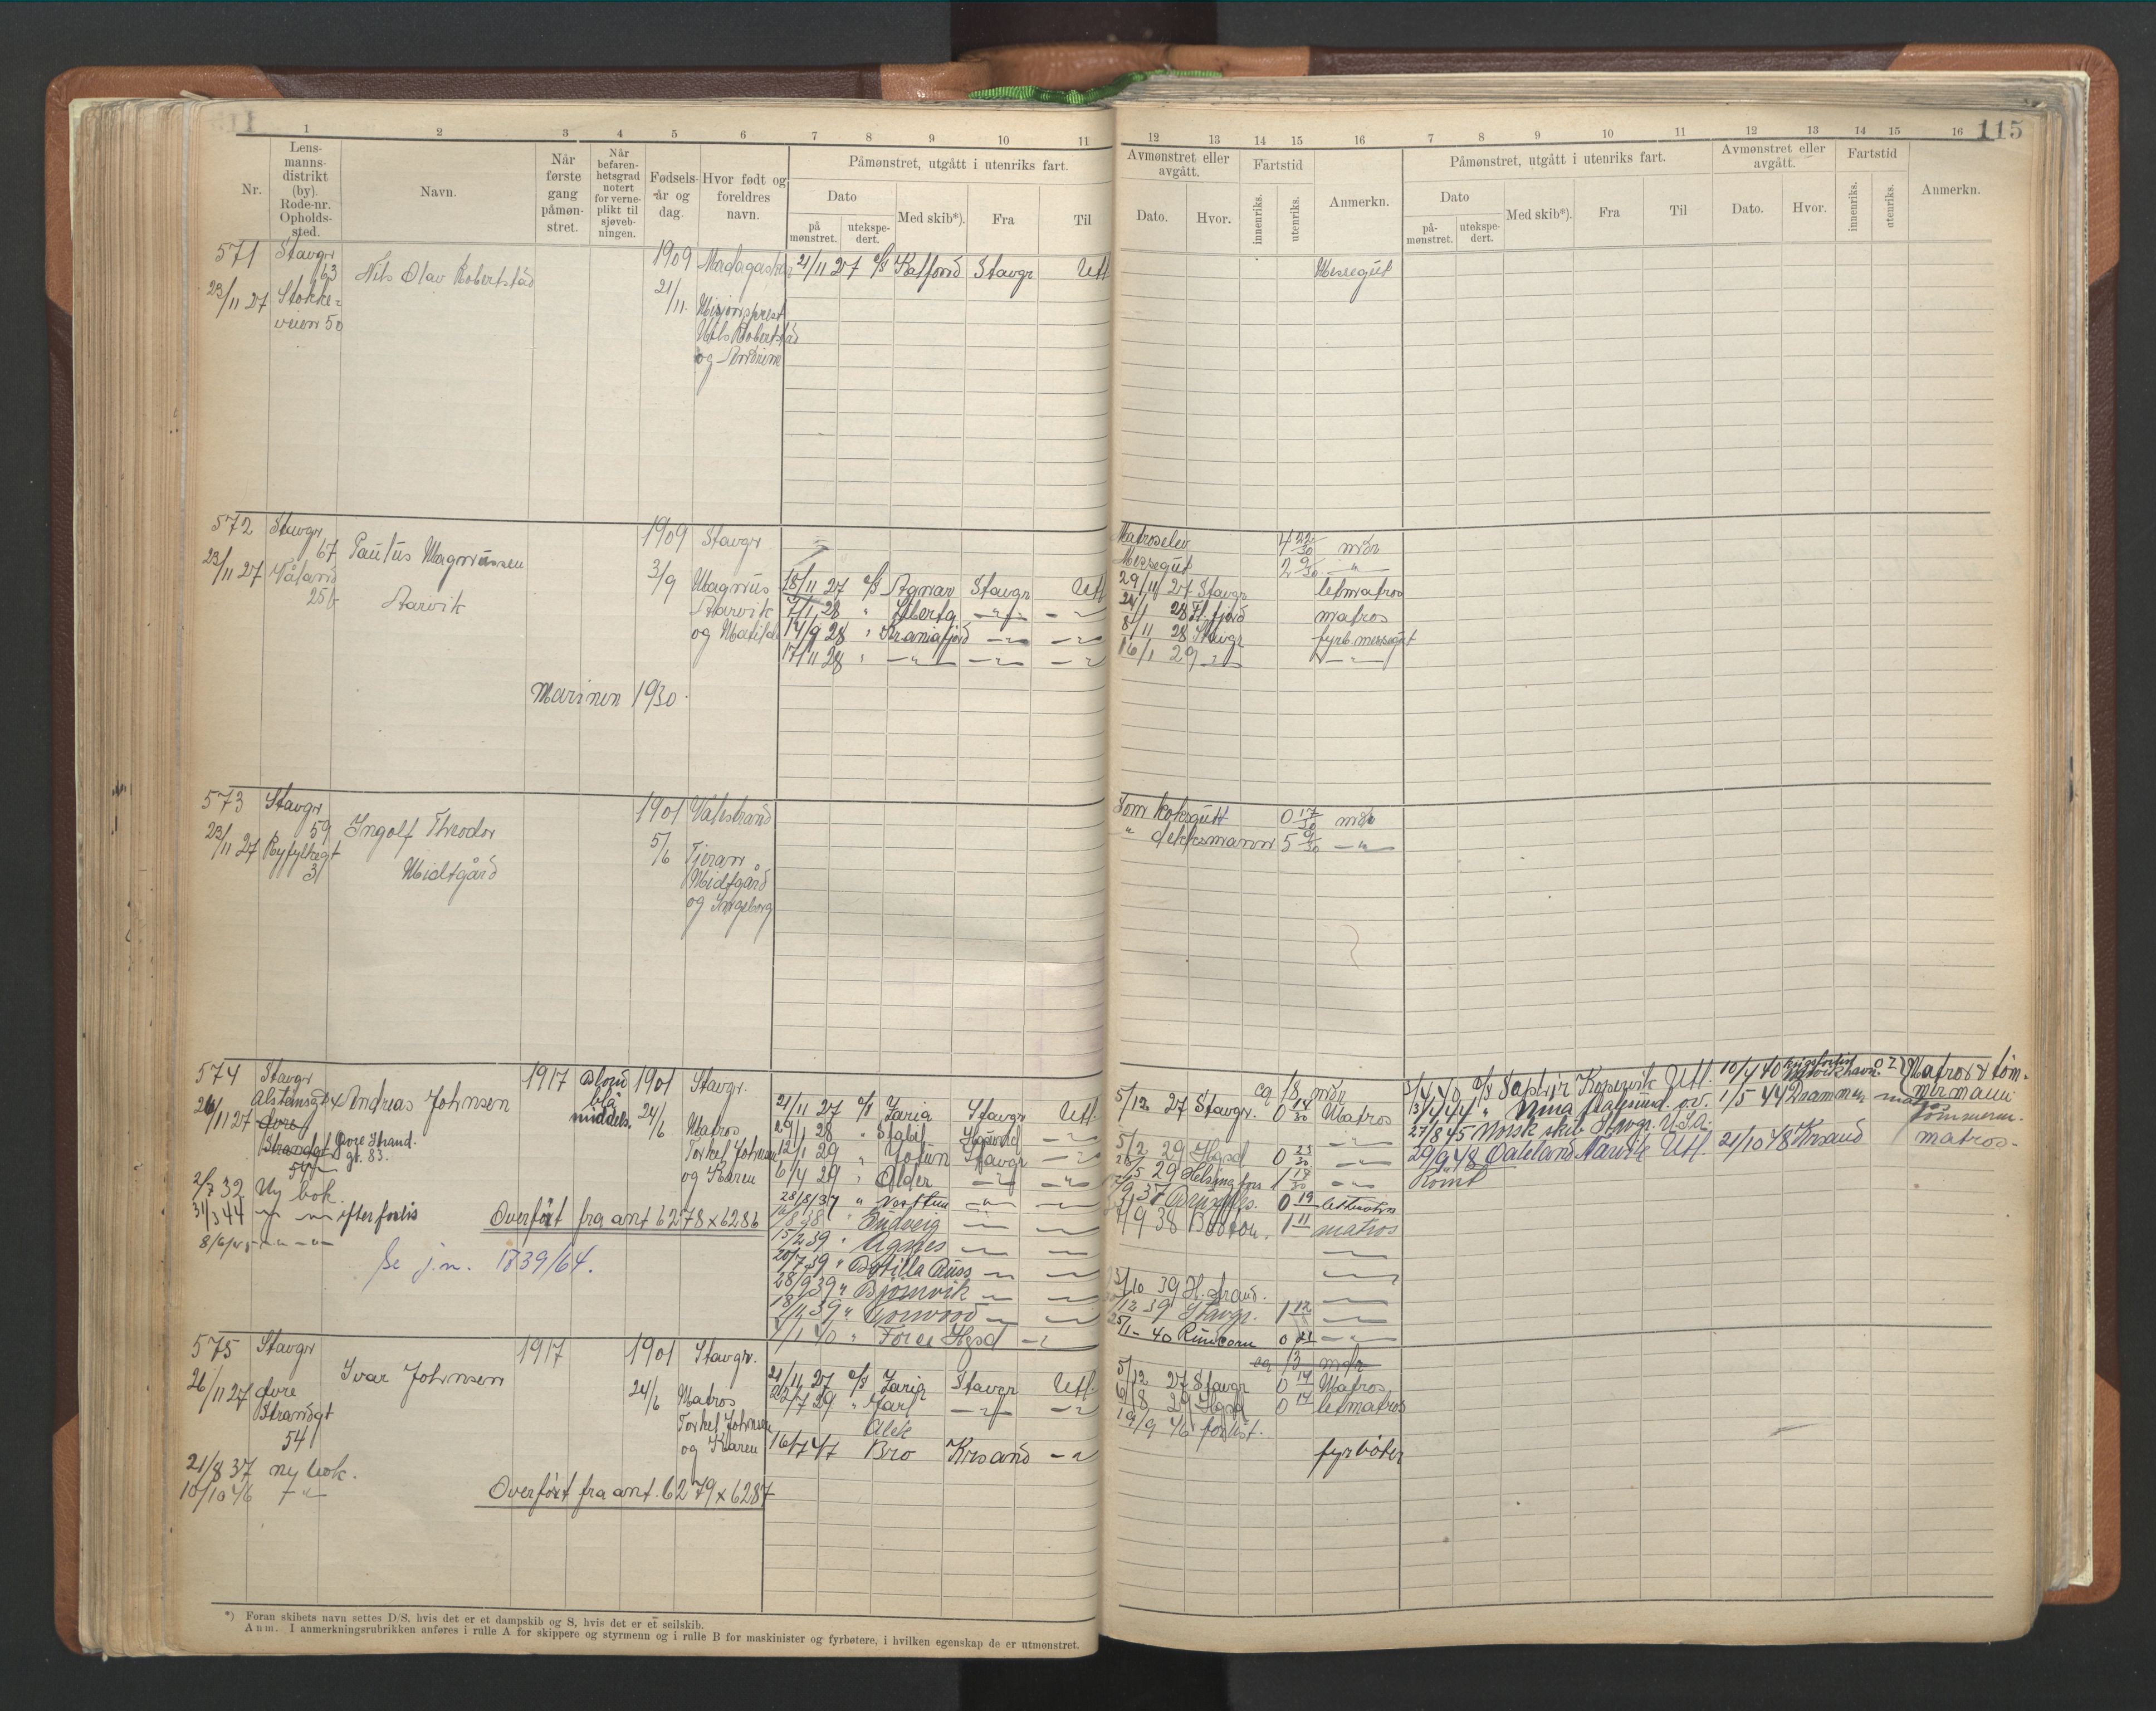 115
1 2 3 4 5 6 7 8 9 10 11 12 13 14 15 16 7 8 9 10 11 12 13 14 15 16
Nr.
Lens-
manns-
distrikt
(by).
Rode-nr.
Opholds-
sted.
Navn.
Når
første
gang
påmøn-
stret.
Når
befaren-
hetsgrad
notert
for verne-
plikt til
sjøveb-
ningen.
Fødsels-
år og
dag.
Hvor født og
foreldres
navn.
Påmønstret, utgått i utenriks fart.
Dato
på
mønstret.
utekspe-
dert.
Med skib*).
Fra
Til
Avmønstret eller
avgått.
Dato.
Hvor.
Fartstid
innenriks.
utenriks.
Anmerkn.
Påmønstret, utgått i utenriks fart.
Dato
på-
mønstret.
utekspe-
dert.
Med skib*).
Fra
Til
Avmønstret eller
avgått.
Dato.
Hvor.
Fartstid
innenriks.
utenriks.
Anmerkn.
571
23/11 27
Stavgr
63
Stokke-
veien 50
Nils Olav Robertstad
1909
21/11
Madagaskar
Misjonsprest
Nils Robertstad
og Andrine
21/11 27 D/S Kalfond Stavgr Utl
Messegut
572
23/11 27
Stavgr
67
Våland
25b
Paulus Magnussen
Aarvik
Marinen 1930.
1909
3/9
Stavgr
Magnus
Aarvik
og Matilde
18/11 27 D/S Agnar Stavgr Utl
7/1 28 " —"— —"
14/9 28 " Kraniafjord —"— —"
17/11 28 " —"— —"— —"
Matroselev 4 22/30 mdr
Messegut 2 9/30 —"—
29/11 27 Stavgr letmatros
24/1 28 Fl.fjord matros
8/11 28 Stavgr fyrb.messegut
16/1 29 —"— —"—
573
23/11 27
Stavgr
59
Ryfylkegt
31
Ingolf Theodor
Midtgård
1901
5/6
Valestrand
Tjeran
Midtgård
og Ingeborg
Som koksgutt 0 17/30 mdr
" dekksmann 5 9/30 —"—
574
26/11 27
Stavgr
Alstensgt 4
Øvre
Strandgt
54
Øvre Strand.
gt. 83.
Andreas Johnsen
1917
Blond
blå
middels.
1901
24/6
Stavgr.
Matros
Torkel Johnsen
og Karen
2/7 32 Ny bok.
31/3 44 —"— —"— efter forlis
8/6/45 —"— —"—
Overført fra ant 6278 x 6286
Se j.n. 1839/64.
21/11 27 D/S Zaria Stavgr Utl.
29/1 28 " Stabil Hgsund —"
12/1 29 " Jotun Stavgr —"
6/4 29 " Older —"— —"
28/8/37 " Vesttun —"— —"
1/8 38 " Sudveig —"— —"
15/2 39 " Agnes —"— —"
20/7 39 " Botilla Russ —"— —"
28/9 39 " Bjørnvik —"— —"
18/11 39 " Gonwood —"— —"
4/1 40 " Fores Hgsd —"
ca 18 mdr
5/12 27 Stavgr. 0 14/30 Matros
5/2 29 Hgsd 0 23/30 —"—
26/5 29 Helsingfors 1 18/30 —"—
9 37 Bruxelles. 0 19 lettmatros
7/9 38 Boston. 1 11 matros
3/10 39 H.strand. —"—
/12 39 Stavgr. 1 12 —"—
25/1-40 Runcorn 0 21 —"—
3/4 40 D/S Saphir Kopervik Utl. 10/4 40 krigsforlist Narvikhavn 0 7 Matros & töm-
mermann
13/4 44 " Nina Aalesund. o.v. 1/5 44 Drammen matr
27/8 45 Norsk skib Stavgr. U.S.A. tömmerm.
29/9 48 Daleland Narvik Utl. 21/10 48 Krsand matros-
Rømt
575
26/11 27
Stavgr
Øvre
Strandgt
54
Ivar Johnsen
1917
1901
24/6
Stavgr.
Matros
Torkel Johnsen
og Karen
21/8 37 ny bok.
10/10 46 —"—
Overført fra ant. 6279 x 6287
21/11 27 D/S Zaria Stavgr Utl.
22/7 29 " Jarl —"— —"
Alek
16/7 47 Bro Krsand —"
ca 13 mdr
5/12 27 Stavgr 0 14 Matros
6/8 29 Hgsd 0 14 letmatros
19/9 46 forlist.
fyrbøter
*) Foran skibets navn settes D/S, hvis det er et dampskib og S, hvis det er et seilskib.
Anm. I anmerkningsrubrikken anføres i rulle A for skippere og styrmenn og i rulle B for maskinister og fyrbøtere, i hvilken egenskap de er utmønstret.